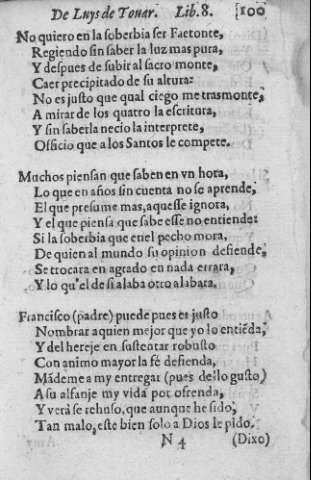 De Luys de Touar. Lib. 8. [100
No quiero en la soberbia ser Faetonte,
Regiendo sin saber la luz mas pura,
Y despues de subir al sacro monte,
Caer precipitado de su altura:
No es justo que qual ciego me trasmonte,
A mirar de los quatro la escritura,
Y sin saberla necio la interprete,
Officio que a los Santos le compete.
Muchos piensan que saben en vn hora,
Lo que en años sin cuenta no se aprende,
El que presume mas, aquesse ignora,
Y el que piensa que sabe esse no entiende:
Si la soberbia que en el pecho mora,
De quien al mundo su opinion defiende,
Se trocara en agrado en nada errara,
Y lo qu'el de si alaba otro alabara.
Francisco (padre) puede pues es justo
Nombrar a quien mejor que yo lo entiẽda,
Y del hereje en sustentar robusto
Con animo mayor la fé defienda,
Mãdeme a my entregar (pues dello gusto)
A su alfanje my vida por ofrenda,
Y verà se rehuso, que aunque he sido,
Tan malo, este bien solo a Dios le pido.
N 4 (Dixo)